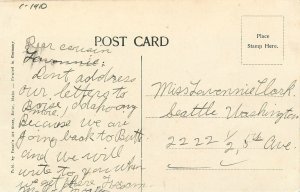 c-1910
POST CARD
Place
Stamp Here.
Dear cousin
Lavonnie:
Don't address
our letters to
Boise, Idaho any
more!
Because we are
going back to Butte
and we will
write to you when
we get there
Miss Lavonnie Clark
Seattle Washington
2222 ½ 5th Ave.